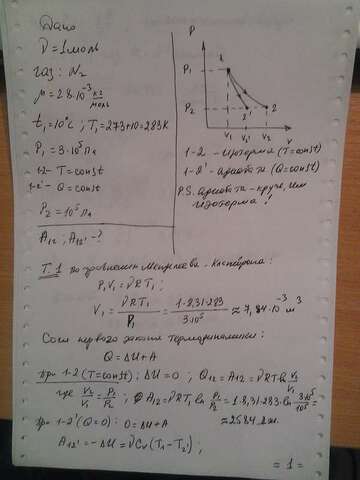 Дано
ν = 1 моль
газ: N₂
μ = 28·10⁻³ кг/моль
t₁ = 10°C ; T₁ = 273+10 = 283K
P₁ = 3·10⁵ Па
1-2 - T = const
1-2' - Q = const
P₂ = 10⁵ Па
A₁₂ ; A₁₂' - ?
P
P₁
1
P₂
2'
2
V₁
V₂'
V₂
V
1-2 - изотерма (T=const)
1-2' - адиабата (Q=const)
P.S. адиабата - круче, чем
изотерма!
T. 1 по уравнению Менделеева - Клапейрона:
P₁V₁ = νRT₁ ;
V₁ = νRT₁/P₁ = 1·8,31·283/3·10⁵ ≈ 7,84·10⁻³ м³
Согл первого закона термодинамики:
Q = ΔU + A
При 1-2 (T=const): ΔU = 0 ; Q₁₂ = A₁₂ = νRT ln V₂/V₁
где V₂/V₁ = P₁/P₂ ; A₁₂ = νRT₁ ln P₁/P₂ = 1·8,31·283·ln 3·10⁵/10⁵ =
≈ 2584 Дж.
При 1-2' (Q=0): 0 = ΔU + A
A₁₂' = -ΔU = νCᵥ(T₁ - T₂') ;
= 1 =